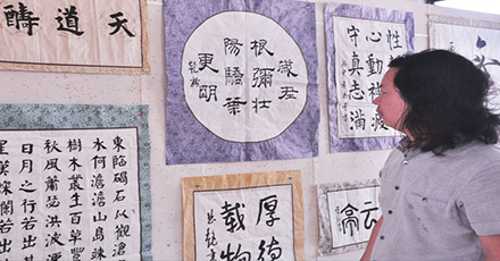 天道酬
歲老
根彌壯
陽驕葉
更阴
性
心動神疲
守真志滿
東臨碣石以觀滄
水何澹澹山島竦
樹木叢生百草豐
秋風蕭瑟洪波湧
日月之行若出其
星漢燦爛若出
厚德
載物
云